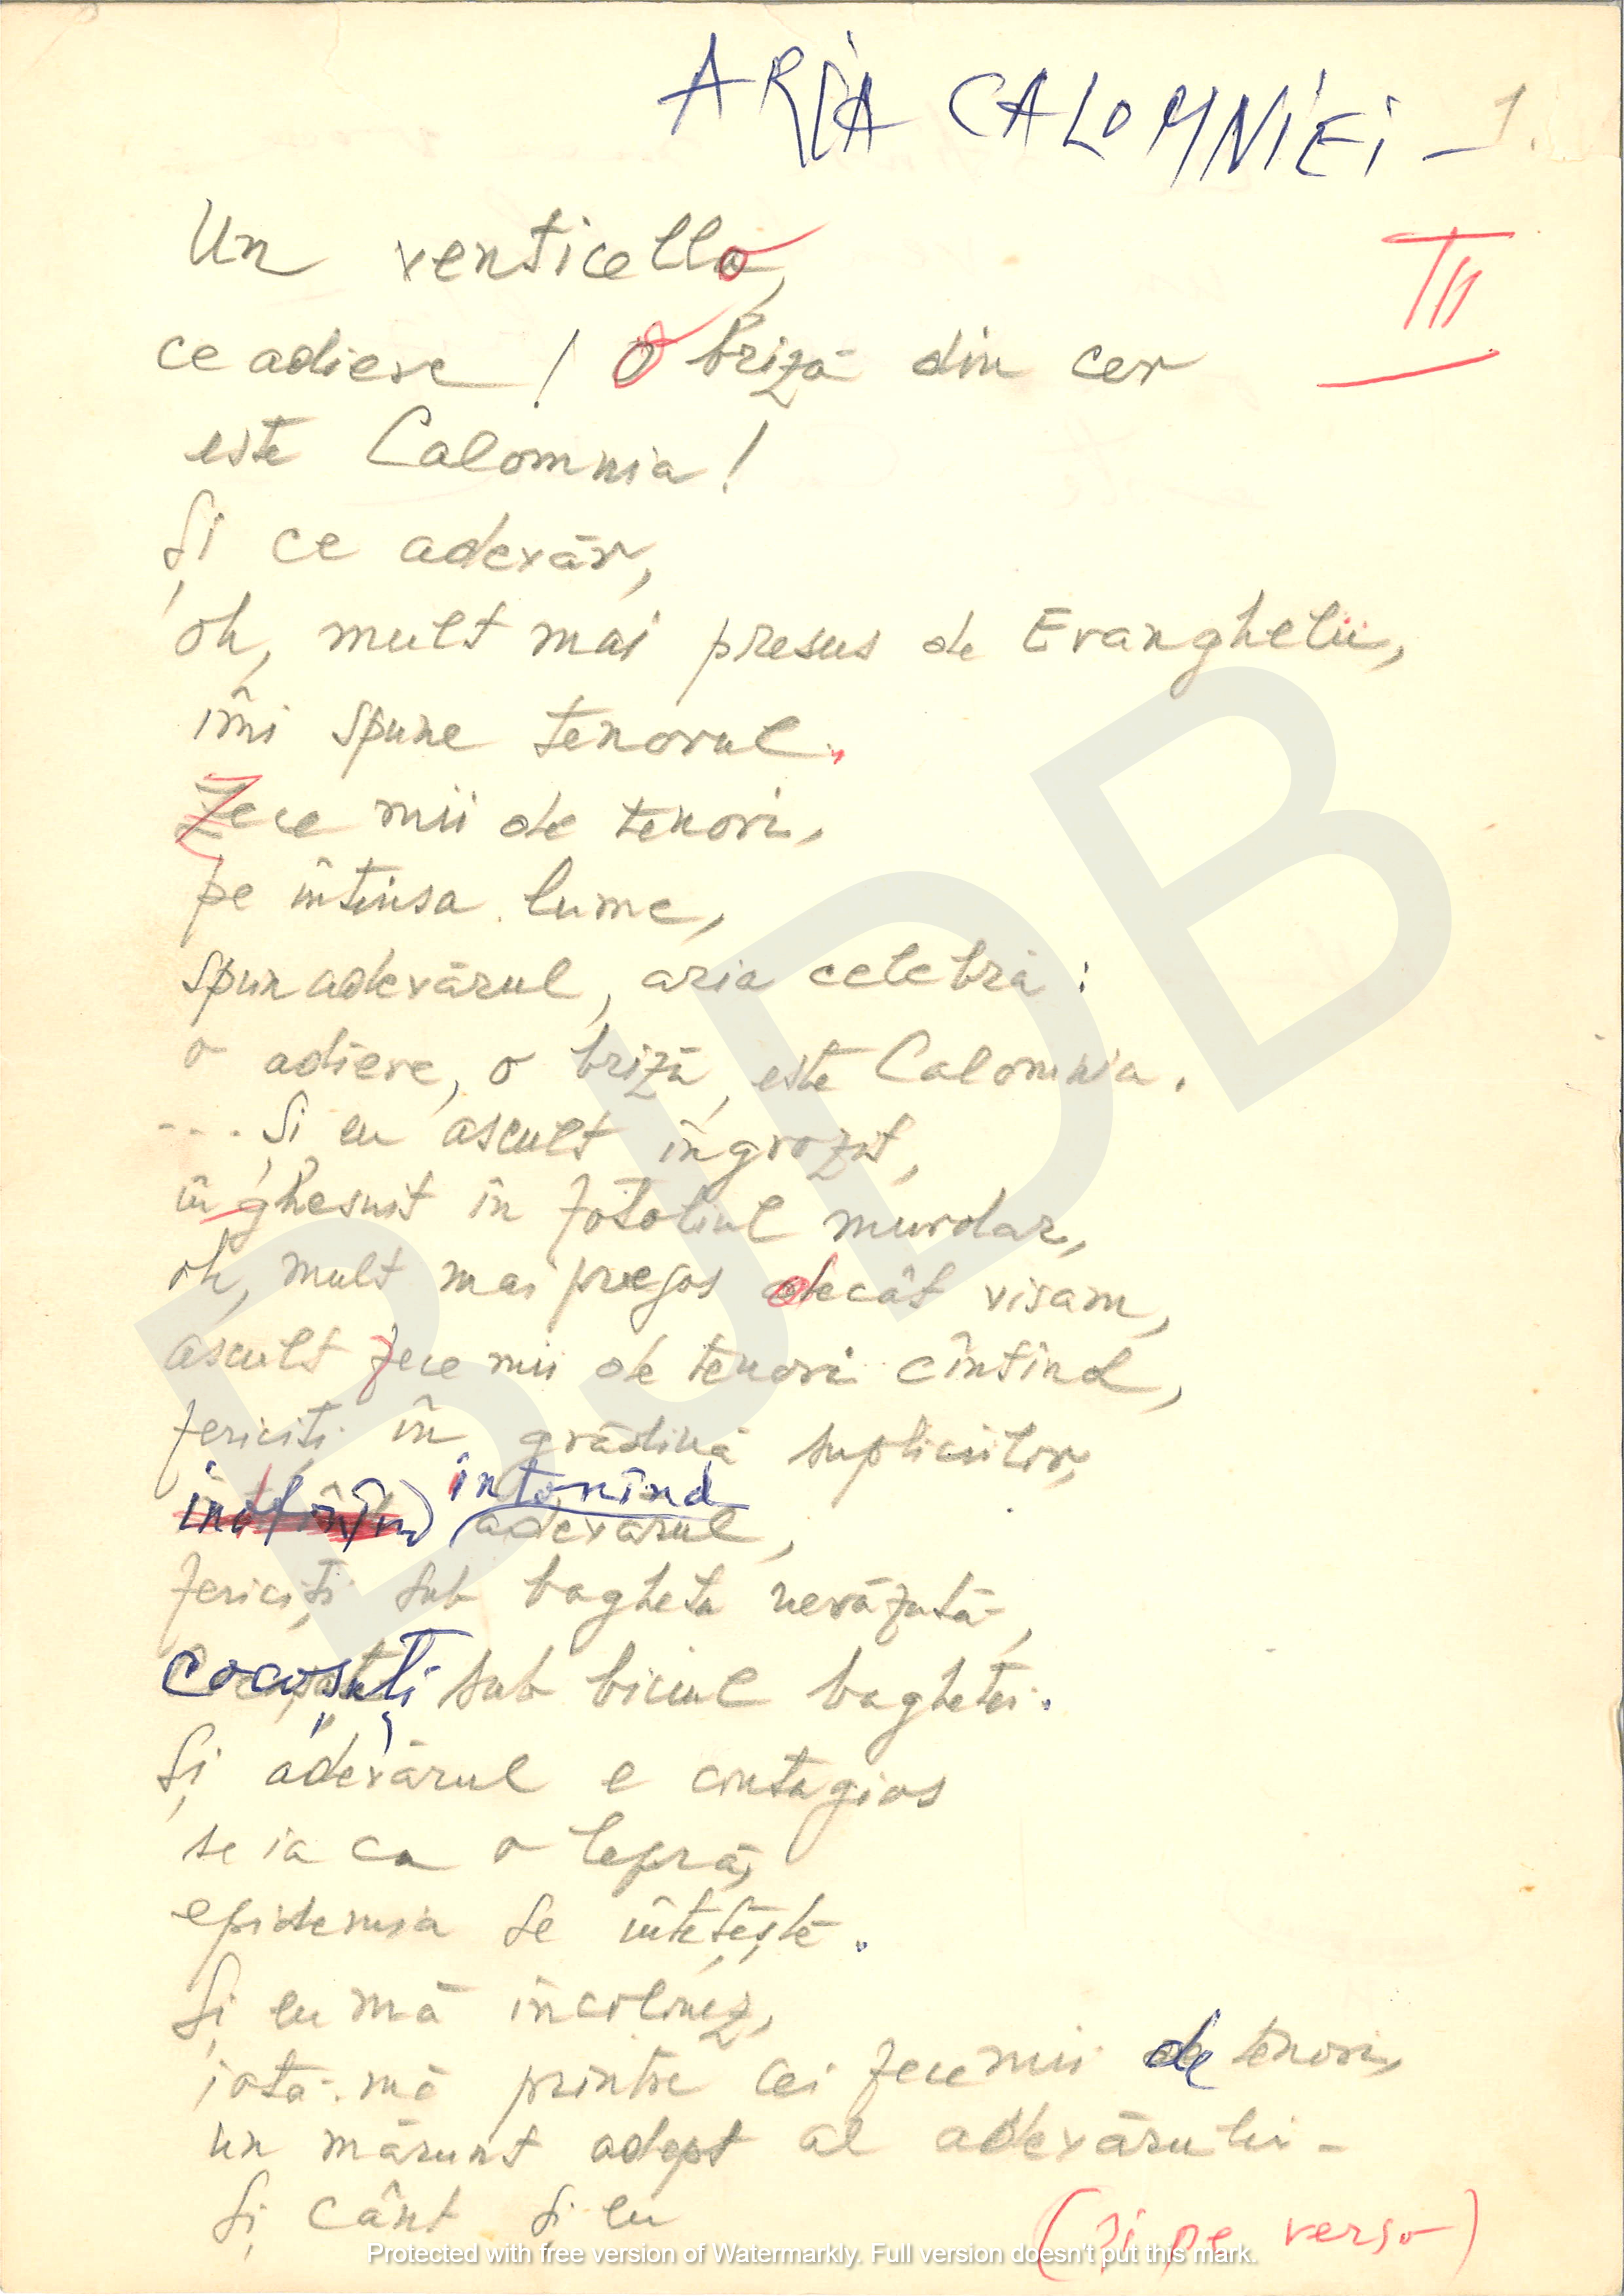 ARIA CALOMNIEI - 1.
III
Un venticello,
ce adiere! O briză din cer
este Calomnia!
Și ce adevăr,
oh, mult mai presus de Evanghelii,
îmi spune tenorul.
Zece mii de tenori,
pe întinsa lume,
spun adevărul, aria celebră:
o adiere, o briză, este Calomnia.
.... Și eu ascult îngrozit,
înghesuit în fotoliul murdar,
oh, mult mai gros decât visam,
ascult zece mii de tenori cîntînd,
fericiți în grădină supliciilor,
intonînd
adevărul,
fericiți sub bagheta nevăzută,
cocoșați sub biciul baghetei.
Și adevărul e contagios
se ia ca o lepră,
epidemia se întețește.
Și eu mă încolonez,
iată-mă printre cei zece mii de tenori,
un mărunt adept al adevărului -
Și cânt și eu
(și pe verso)
BJDB
Protected with free version of Watermarkly. Full version doesn't put this mark.